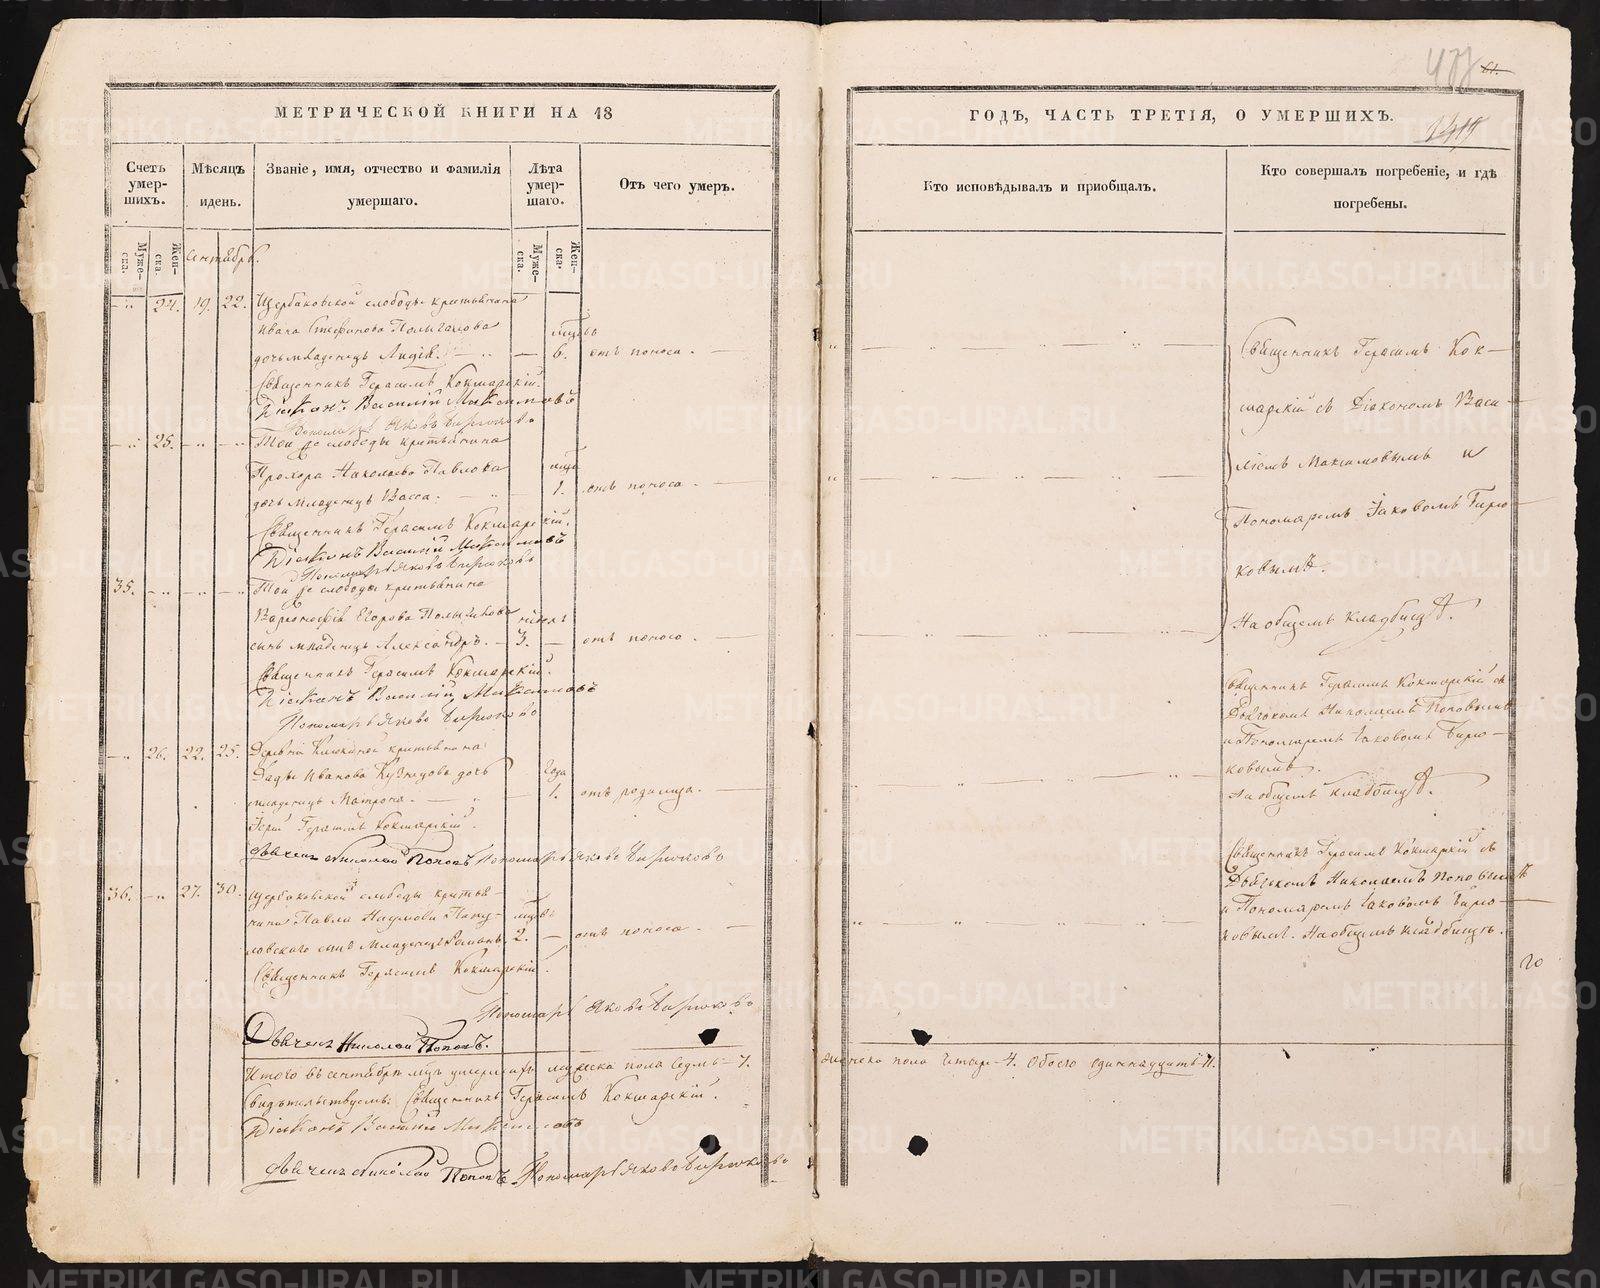 МЕТРИЧЕСКОЙ КНИГИ НА 18
Счетъ умер-шихъ.
Мѣсяцъ идень.
Званіе, имя, отчество и фамилія умершаго.
Лѣта умер-шаго.
Отъ чего умеръ.
Муже-ска.
Жен-ска.
Муже-ска.
Жен-ска.
Сентябрь.
24. 19. 22. Щербаковской слободы крестьянина
Ивана Стефанова
дочь младенецъ Лидія. 6. отъ поноса.
Священникъ Герасимъ Кокшарскій.
Діаконъ Василій Максимовъ
Пономарь Яковъ Бирюковъ
25. Той же слободы крестьянина
Прохора Павлова
дочь младенецъ Васса. 1. отъ поноса.
Священникъ Герасимъ Кокшарскій.
Діаконъ Василій Максимовъ
Пономарь Яковъ Бирюковъ
35. Той же слободы крестьянина
Егорова
сынъ младенецъ Александръ. 3. отъ поноса.
Священникъ Герасимъ Кокшарскій.
Діаконъ Василій Максимовъ
Пономарь Яковъ Бирюковъ
26. 22. 25. Деревни крестьянина
Иванова Кузнецова дочь
младенецъ Матрона. Года 1. отъ родимца.
Іерей Герасимъ Кокшарскій.
Дьячекъ Николай Поповъ Пономарь Яковъ Бирюковъ
36. 27. 30. Щербаковской слободы крестья-
нина Павла Наумова
сынъ младенецъ Романъ. 2. отъ поноса.
Священникъ Герасимъ Кокшарскій.
Пономарь Яковъ Бирюковъ
Дьячекъ Николай Поповъ.
Итого въ сентябрѣ мцѣ умершихъ мужеска пола Седмь-7.
Свидѣтельствуемъ: Священникъ Герасимъ Кокшарскій.
Діаконъ Василій Максимовъ
Дьячекъ Николай Поповъ. Пономарь Яковъ Бирюковъ
61.
ГОДЪ, ЧАСТЬ ТРЕТІЯ, О УМЕРШИХЪ.
Кто исповѣдывалъ и пріобщалъ.
Кто совершалъ погребеніе, и гдѣ погребены.
Священникъ Герасимъ Кок-
шарскій съ Діакономъ Васи-
ліемъ Максимовымъ и
Пономаремъ Іаковомъ Бирю-
ковымъ.
На общемъ кладбищѣ.
Священникъ Герасимъ Кокшарскій съ
Дьячкомъ Николаемъ Поповымъ
и Пономаремъ Іаковомъ Бирю-
ковымъ.
На общемъ кладбищѣ.
Священникъ Герасимъ Кокшарскій съ
Дьячкомъ Николаемъ Поповымъ
и Пономаремъ Іаковомъ Бирю-
ковымъ. На общемъ кладбищѣ.
20
женска пола Четыре-4. Обоего одиннадцать-11.
METRIKI.GASO-URAL.RU